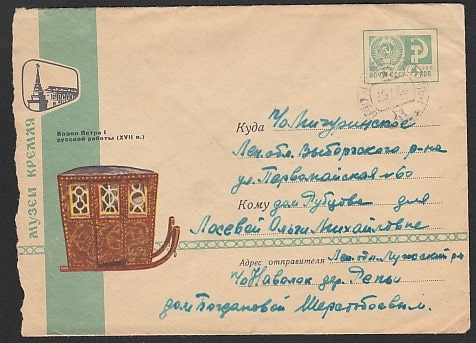 МУЗЕИ КРЕМЛЯ
Возок Петра I
русской работы (XVII в.)
ПОЧТА СССР
Куда п/о Мичуринское
Лен. обл. Выборгского р-на
ул. Первомайская
Кому дом Рубцова для
Лосевой Ольги Михайловне
Адрес отправителя Лен. обл. Лужский р-н
п/о Наволок дер. Репьи
дом Богдановой